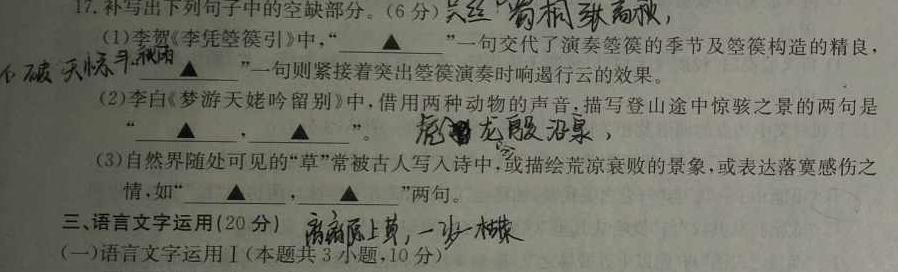 17.补写出下列句子中的空缺部分。(6分)吴丝蜀桐张高秋,
(1)李贺《李凭箜篌引》中,“▲”一句交代了演奏箜篌的季节及箜篌构造的精良,
破天惊斗秋雨
“▲”一句则紧接着突出箜篌演奏时响遏行云的效果。
(2)李白《梦游天姥吟留别》中,借用两种动物的声音,描写登山途中惊骇之景的两句是
“▲,▲”。 龙殷泉,
(3)自然界随处可见的“草”常被古人写入诗中,或描绘荒凉衰败的景象,或表达落寞感伤之
情,如“▲,▲”两句。
三、语言文字运用(20分) 离离原上草,一岁一枯荣
(一)语言文字运用Ⅰ(本题共3小题,10分)